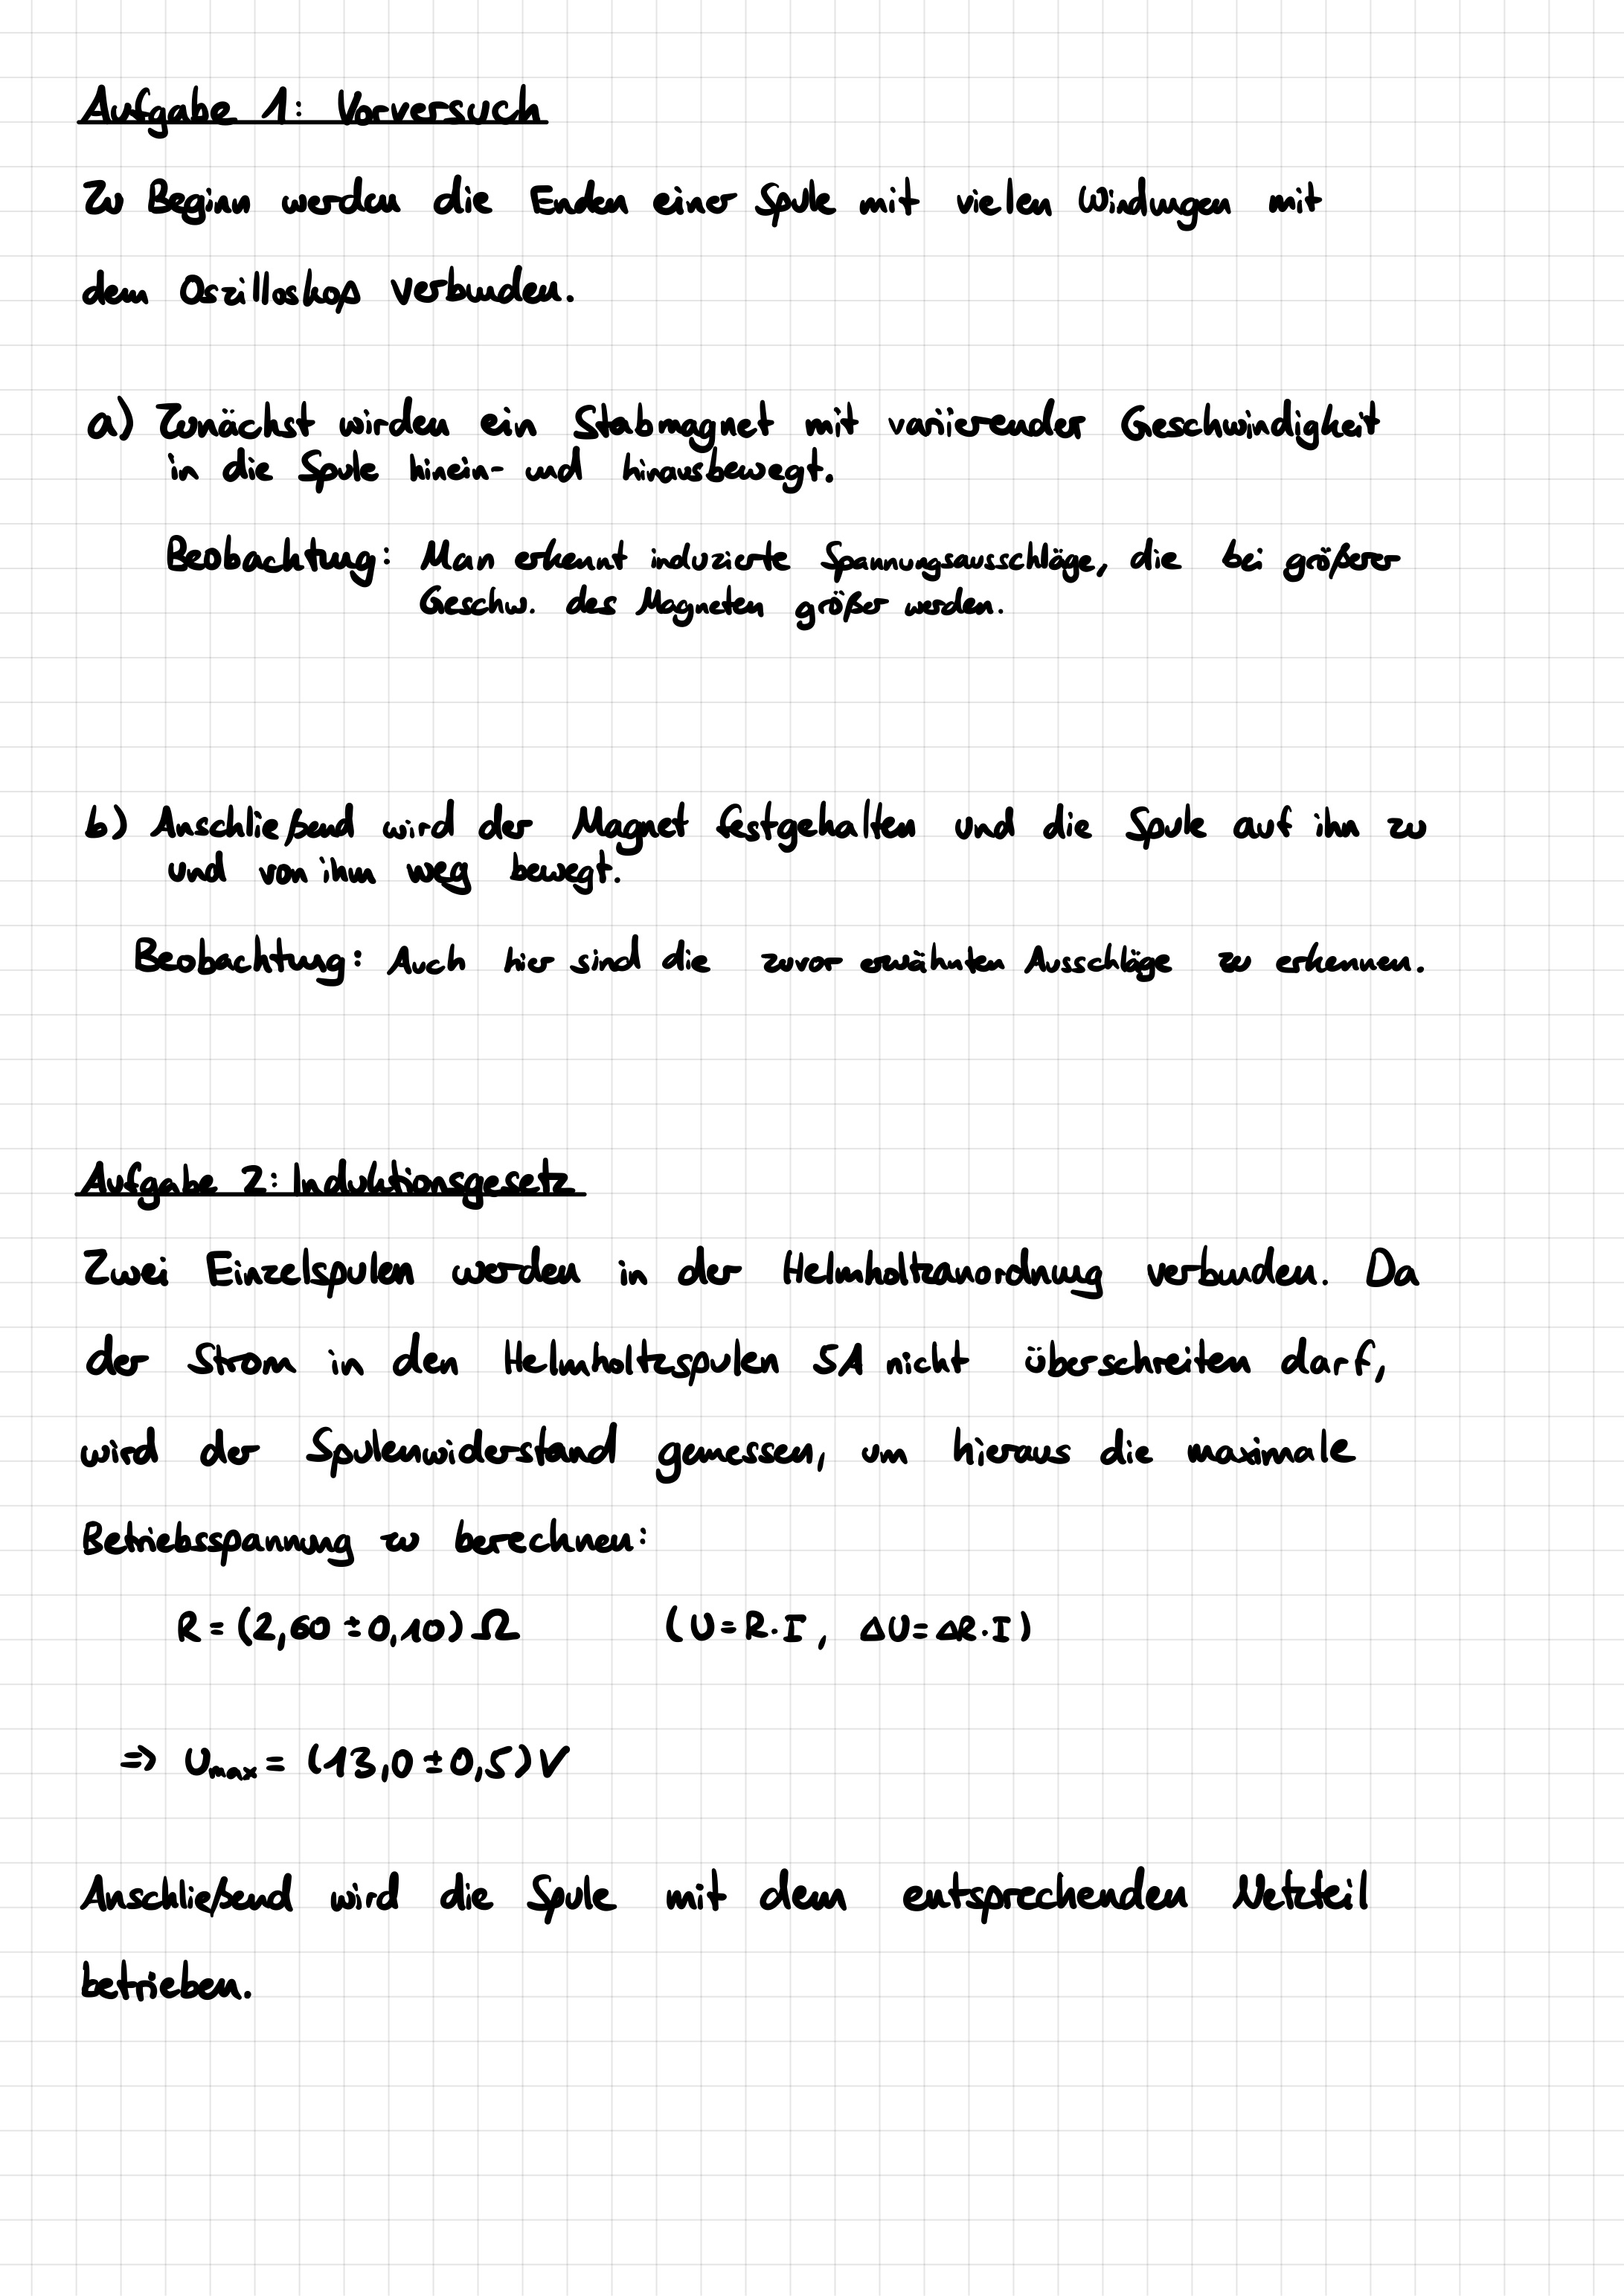 Aufgabe 1: Vorversuch
Zu Beginn werden die Enden einer Spule mit vielen Windungen mit
dem Oszilloskop verbunden.
a) Zunächst wirden ein Stabmagnet mit variierender Geschwindigkeit
in die Spule hinein- und hinausbewegt.
Beobachtung: Man erkennt induzierte Spannungsausschläge, die bei größerer
Geschw. des Magneten größer werden.
b) Anschließend wird der Magnet festgehalten und die Spule auf ihn zu
und von ihm weg bewegt.
Beobachtung: Auch hier sind die zuvor erwähnten Ausschläge zu erkennen.
Aufgabe 2: Induktionsgesetz
Zwei Einzelspulen werden in der Helmholtzanordnung verbunden. Da
der Strom in den Helmholtzspulen 5A nicht überschreiten darf,
wird der Spulenwiderstand gemessen, um hieraus die maximale
Betriebsspannung zu berechnen:
R = (2,60 ± 0,10) Ω (U = R·I, ΔU = ΔR·I)
⇒ Umax = (13,0 ± 0,5) V
Anschließend wird die Spule mit dem entsprechenden Netzteil
betrieben.